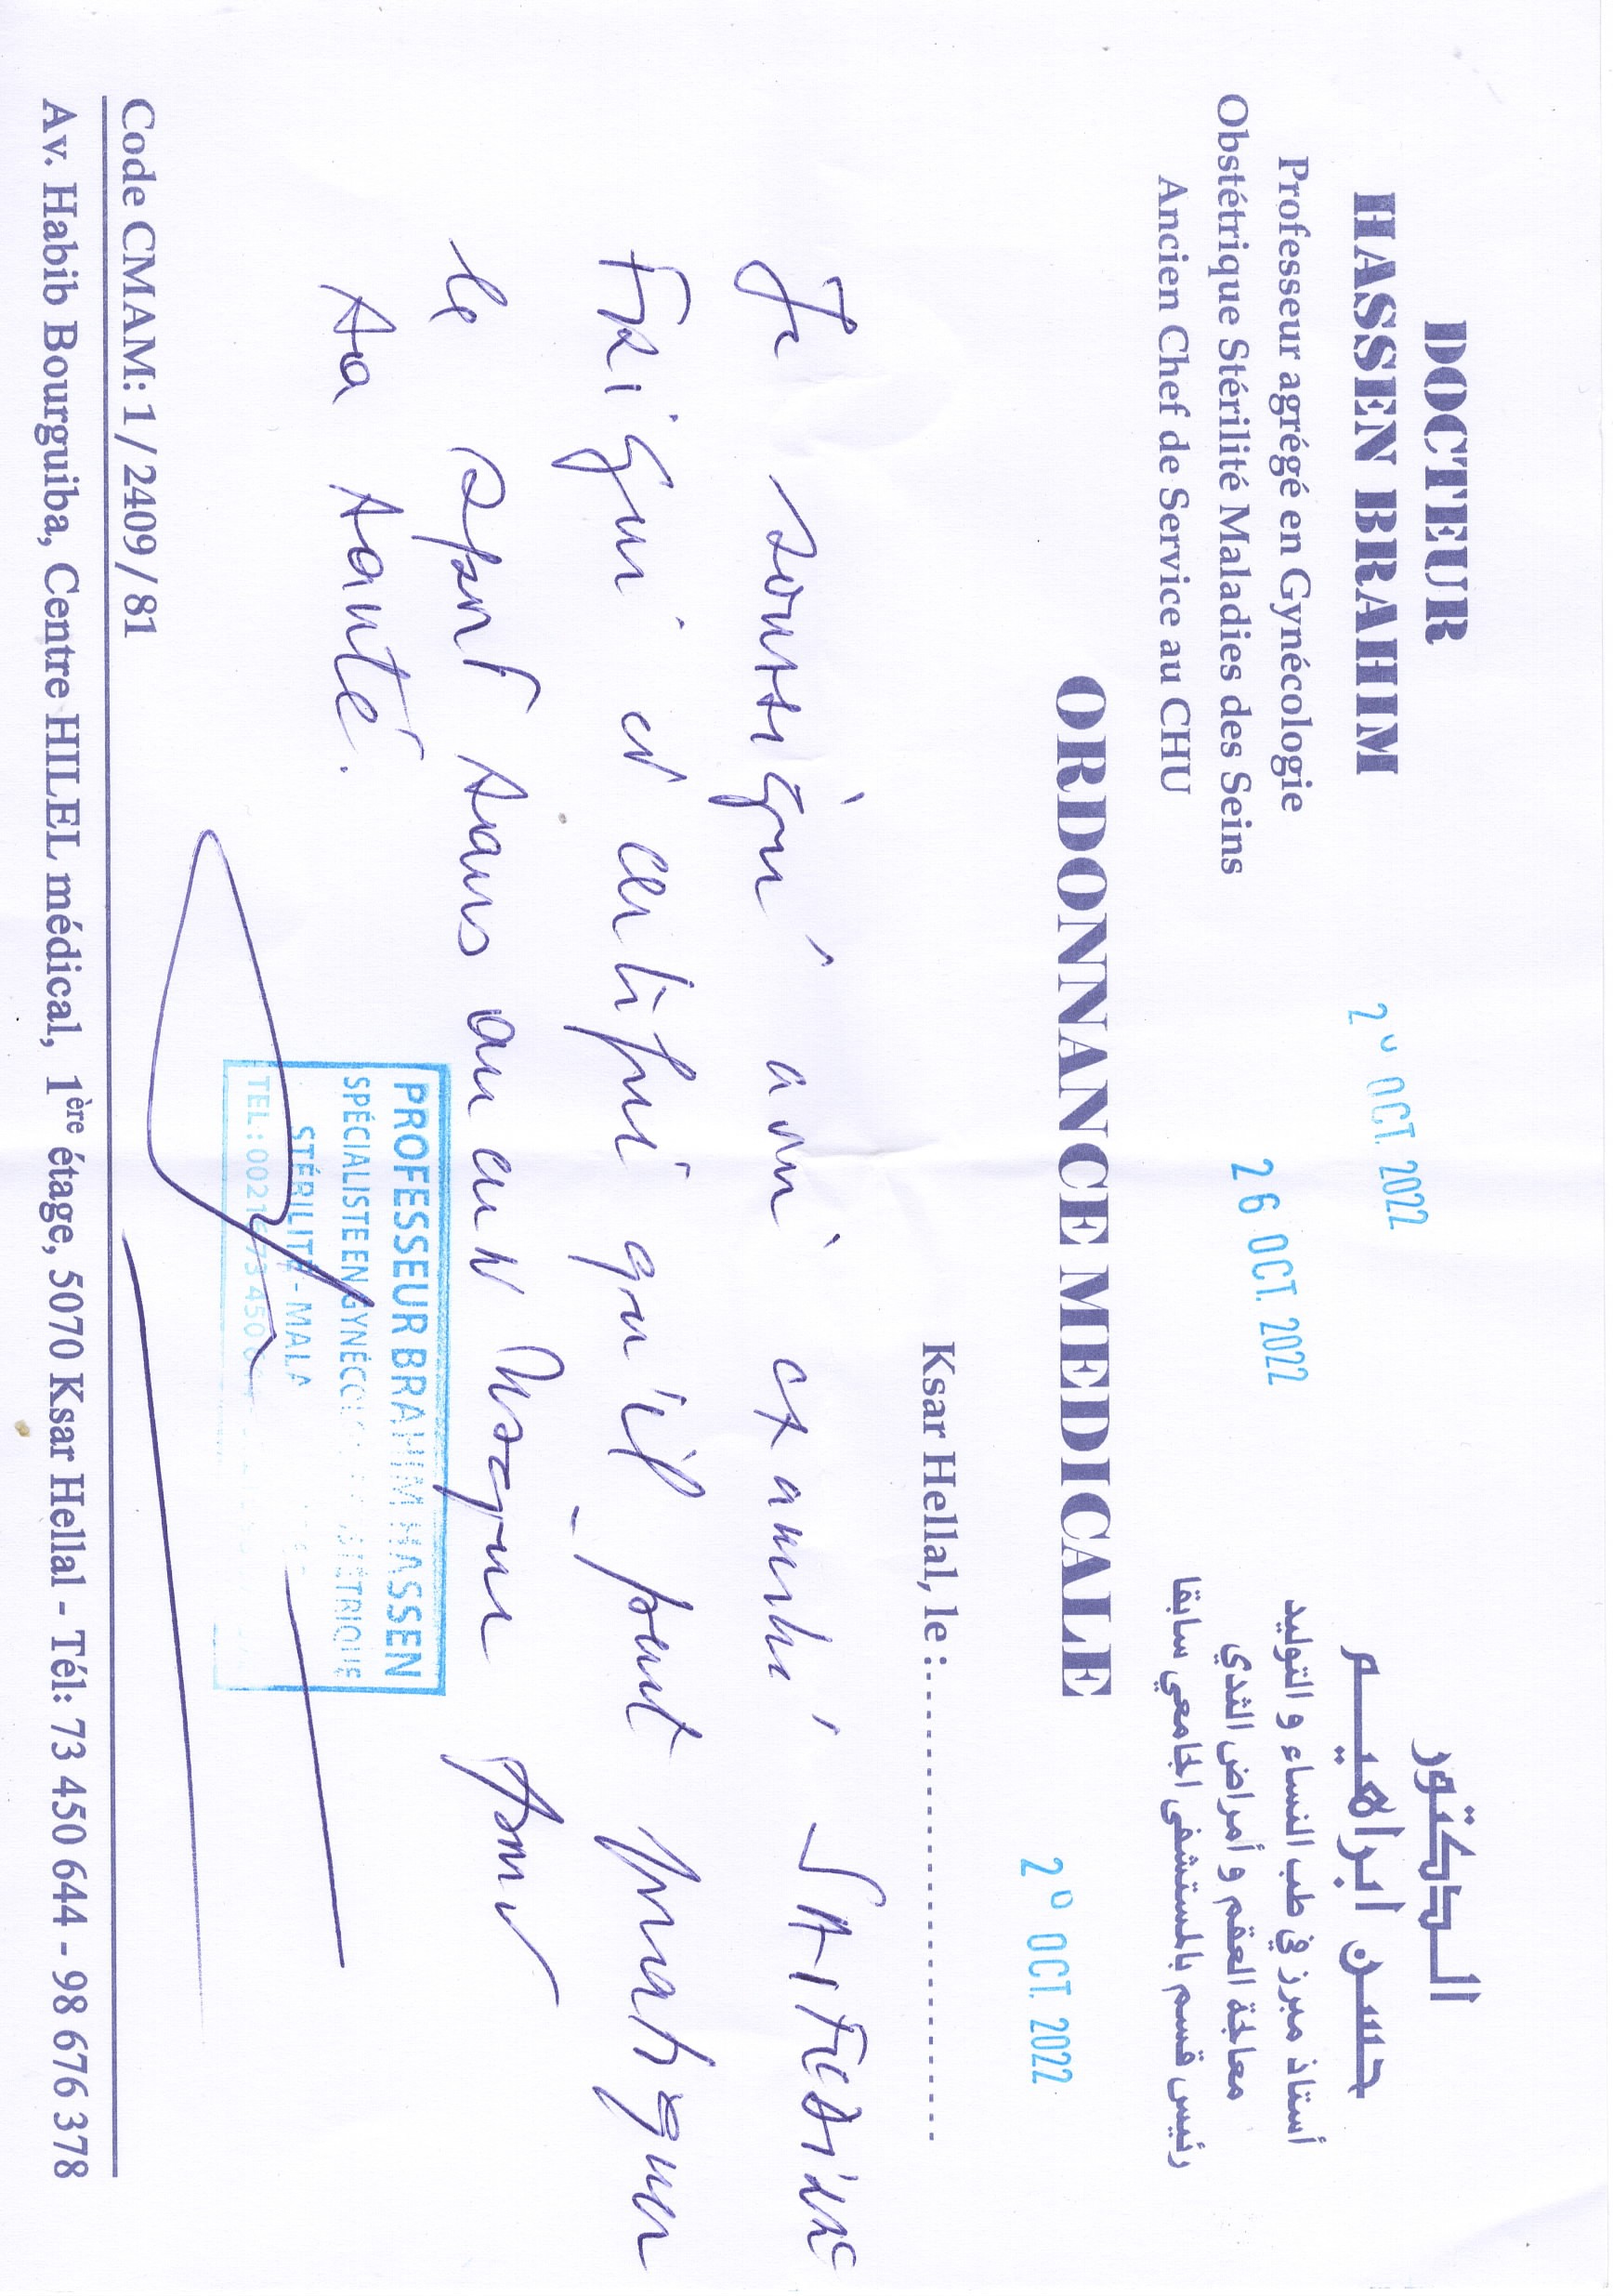 DOCTEUR
HASSEN BRAHIM
Professeur agrégé en Gynécologie
Obstétrique Stérilité Maladies des Seins
Ancien Chef de Service au CHU
الدكتور
حسن ابراهيم
أستاذ مبرز في طب النساء و التوليد
معالجة العقم و أمراض الثدي
رئيس قسم بالمستشفى الجامعي سابقا
OCT. 2022
26 OCT. 2022
OCT. 2022
ORDONNANCE MEDICALE
Ksar Hellal, le :
Je soussigné avoir examiné
et certifié qu'il peut pratiquer
le sport sans aucun risque pour
sa santé.
PROFESSEUR BRAHIM HASSEN
SPÉCIALISTE EN
STÉRILITÉ - MALA
TEL: 00216 73 450
Code CMAM: 1/2409/81
Av. Habib Bourguiba, Centre HILEL médical, 1ère étage, 5070 Ksar Hellal - Tél: 73 450 644 - 98 676 378